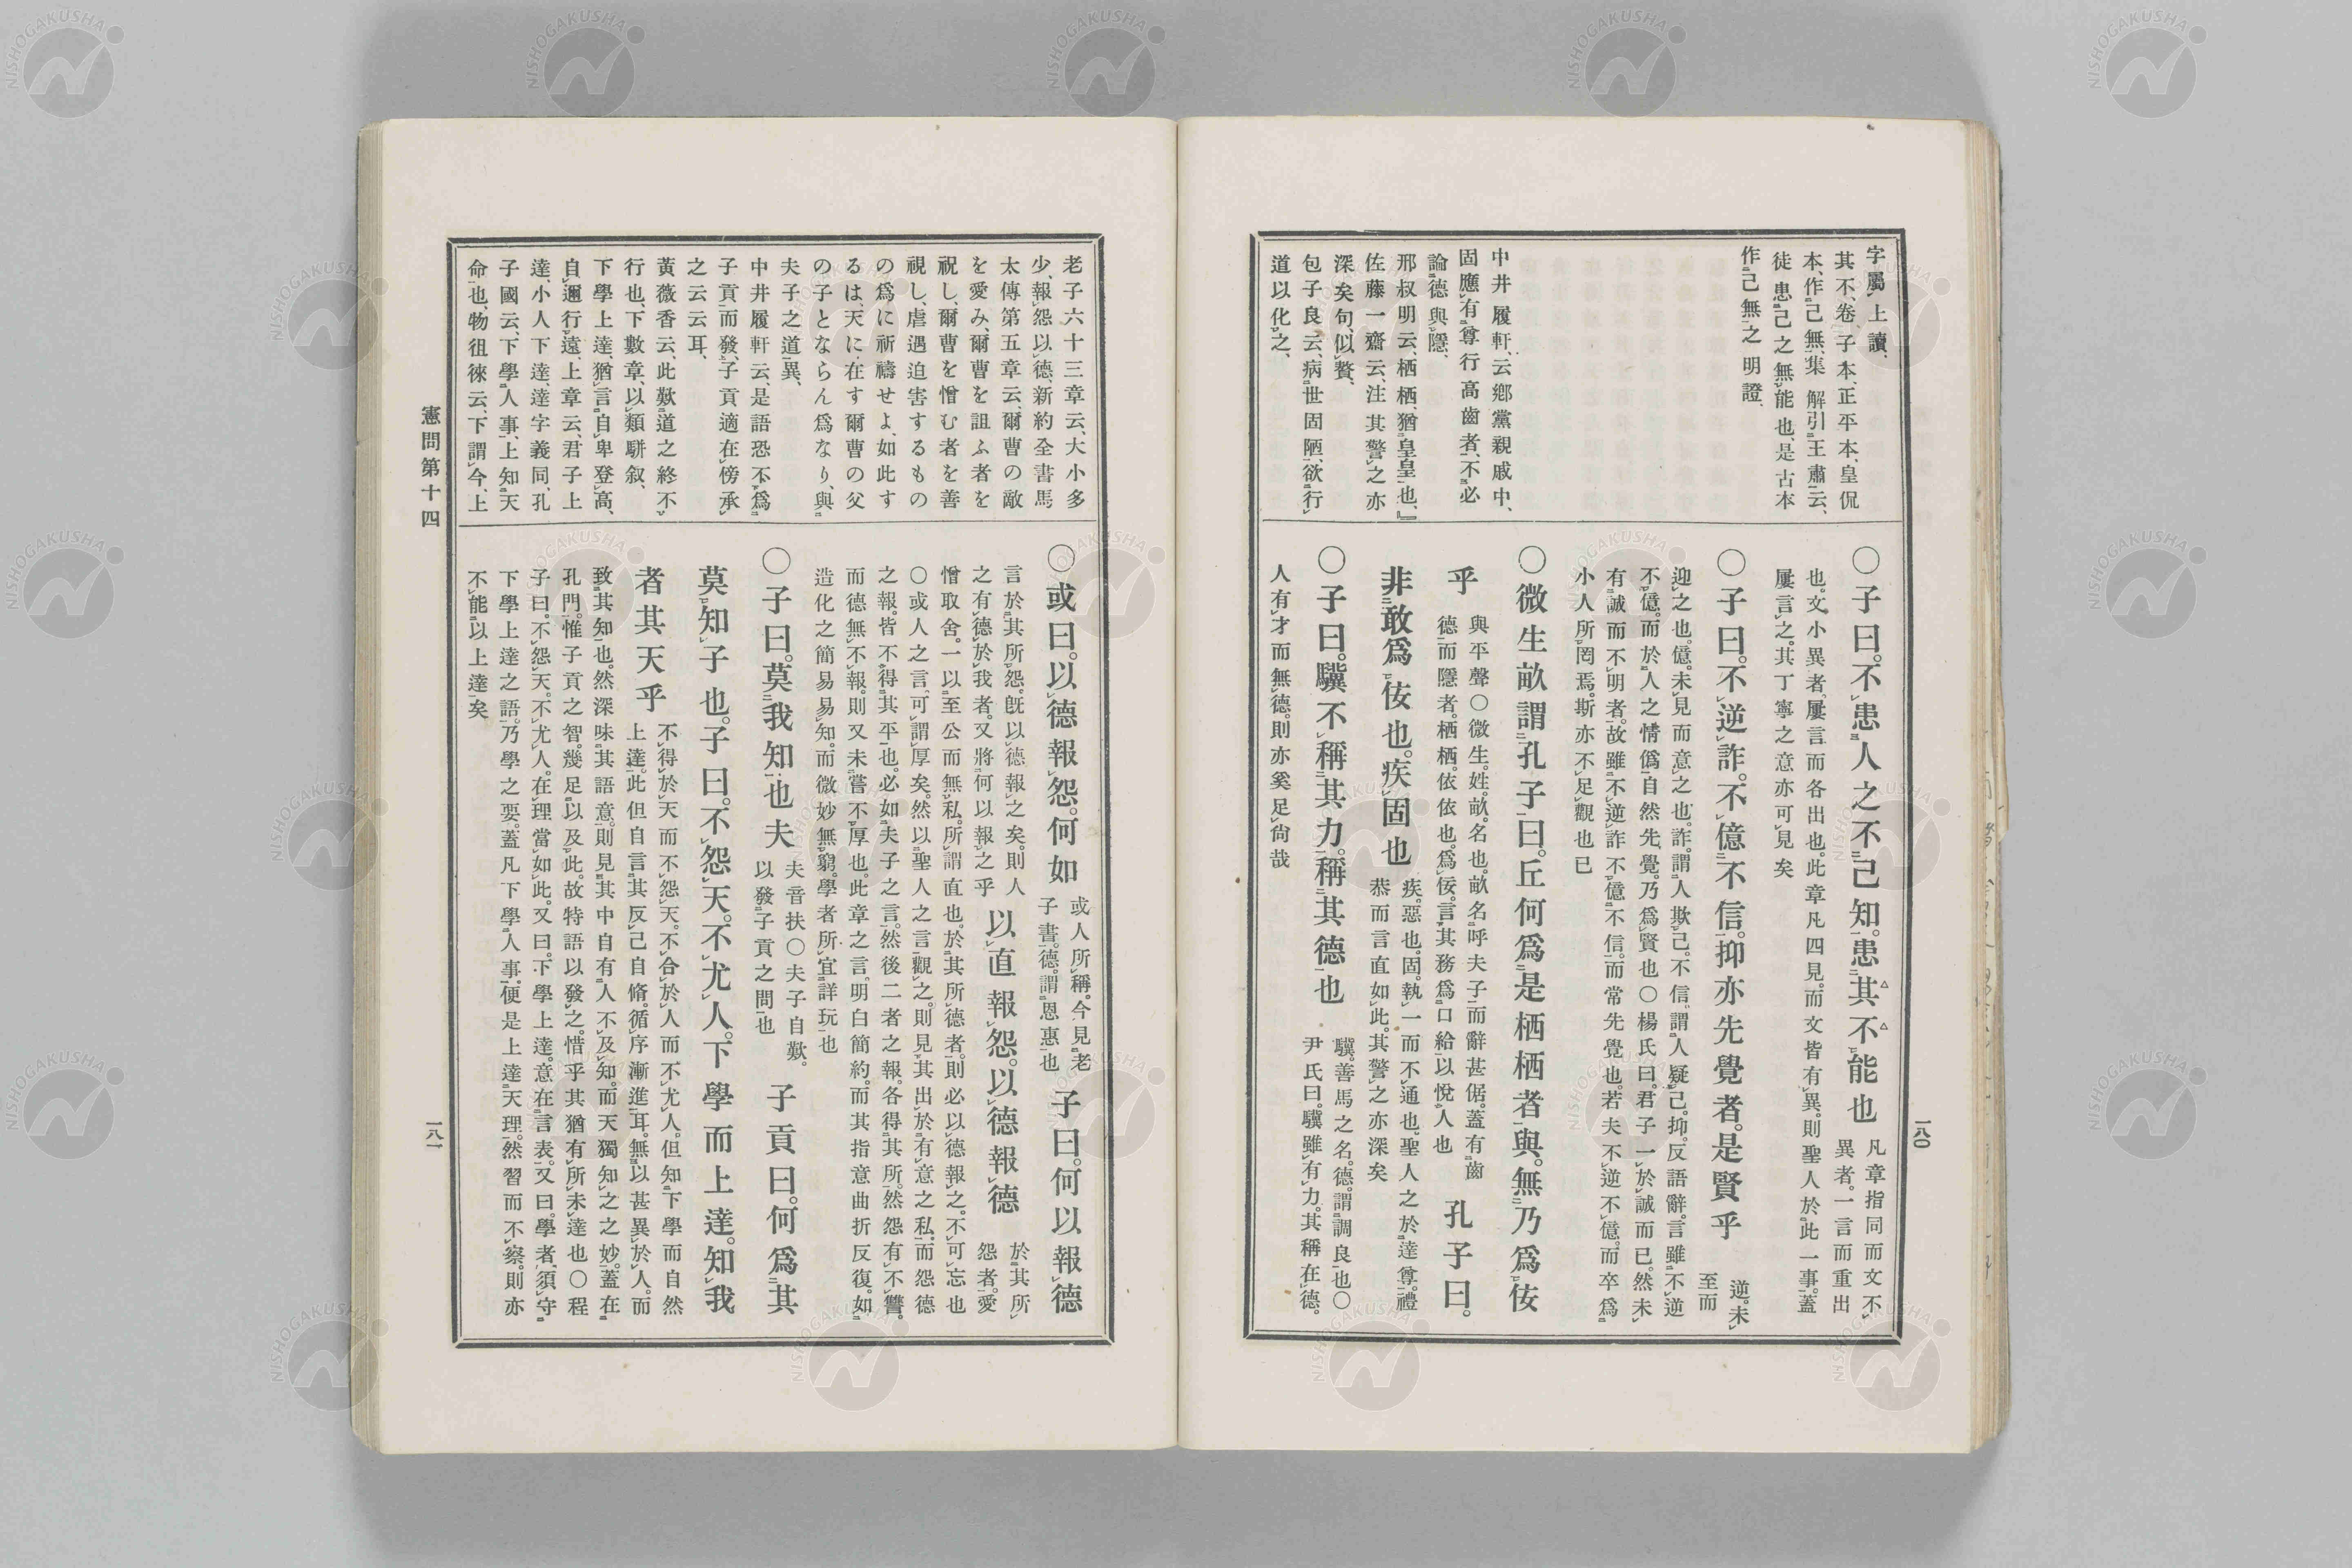 字屬上讀、
其不、卷子本、正平本、皇侃
本、作己無、集解引王肅云、
徒患己之無能也、是古本
作己無之明證、
中井履軒、云鄉黨親戚中、
固應有尊行高齒者、不必
論德與隱、
邢叔明云、栖栖、猶皇皇也、
佐藤一齋云、注其警之亦
深矣句、似贅、
包子良云、病世固陋、欲行
道以化之、
〇子曰。不患人之不己知。患其不能也
凡章指同而文不
異者。一言而重出
也。文小異者。屢言而各出也。此章凡四見。而文皆有異。則聖人於此一事。蓋
屢言之。其丁寧之意亦可見矣
〇子曰。不逆詐。不億不信。抑亦先覺者。是賢乎
逆。未
至而
迎之也。億。未見而意之也。詐。謂人欺己。不信。謂人疑己。抑。反語辭。言雖不逆
不億。而於人之情僞。自然先覺。乃爲賢也〇楊氏曰。君子一於誠而已。然未
有誠而不明者。故雖不逆詐不億不信。而常先覺也。若夫不逆不億。而卒爲
小人所罔焉。斯亦不足觀也已
〇微生畝謂孔子曰。丘何爲是栖栖者與。無乃爲佞
乎
與平聲〇微生。姓。畝。名也。畝名呼夫子而辭甚倨。蓋有齒
德而隱者。栖栖。依依也。爲佞。言其務爲口給以悅人也
孔子曰。
非敢爲佞也。疾固也
疾。惡也。固。執一而不通也。聖人之於達尊。禮
恭而言直如此。其警之亦深矣
〇子曰。驥不稱其力。稱其德也
驥。善馬之名。德。謂調良也〇
尹氏曰。驥雖有力。其稱在德。
人有才而無德。則亦奚足尙哉
一八〇
老子六十三章云、大小多
少、報怨以德、新約全書馬
太傳第五章云、爾曹の敵
を愛み、爾曹を詛ふ者を
祝し、爾曹を憎む者を善
視し、虐遇迫害するもの
の爲に祈禱せよ、如此す
るは、天に在す爾曹の父
の子とならん爲なり、與
夫子之道異、
中井履軒云、是語恐不爲
子貢而發、子貢適在傍承
之云云耳、
黃薇香云、此歎道之終不
行也、下數章、以類駢叙、
下學上達、猶言自卑登高、
自邇行遠、上章云、君子上
達、小人下達、達字義同、孔
子國云、下學人事、上知天
命也、物徂徠云、下謂今、上
〇或曰。以德報怨。何如
或人所稱。今見老
子書。德。謂恩惠也
子曰。何以報德
言於其所怨。旣以德報之矣。則人
之有德於我者。又將何以報之乎
以直報怨。以德報德
於其所
怨者。愛
憎取舍。一以至公而無私。所謂直也。於其所德者。則必以德報之。不可忘也
〇或人之言。可謂厚矣。然以聖人之言觀之。則見其出於有意之私。而怨德
之報。皆不得其平也。必如夫子之言。然後二者之報。各得其所。然怨有不讐。
而德無不報。則又未嘗不厚也。此章之言。明白簡約。而其指意曲折反復。如
造化之簡易易知。而微妙無窮。學者所宜詳玩也
〇子曰。莫我知也夫
夫音扶〇夫子自歎。
以發子貢之問也
子貢曰。何爲其
莫知子也。子曰。不怨天。不尤人。下學而上達。知我
者其天乎
不得於天而不怨天。不合於人而不尤人。但知下學而自然
上達。此但自言其反己自脩。循序漸進耳。無以甚異於人。而
致其知也。然深味其語意。則見其中自有人不及知。而天獨知之之妙。蓋在
孔門。惟子貢之智。幾足以及此。故特語以發之。惜乎其猶有所未達也〇程
子曰。不怨天。不尤人。在理當如此。又曰。下學上達。意在言表。又曰。學者須守
下學上達之語。乃學之要。蓋凡下學人事。便是上達天理。然習而不察。則亦
不能以上達矣
憲問第十四
一八一